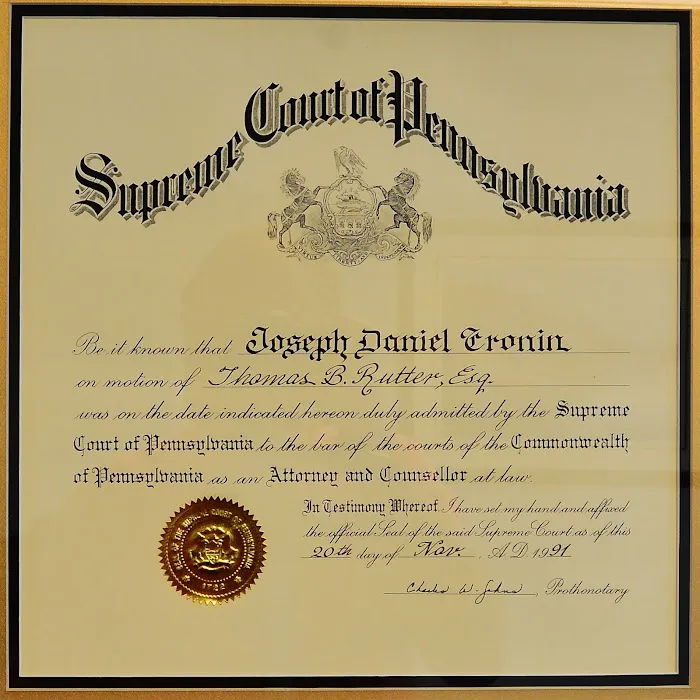 Supreme Court of Pennsylvania
VIRTUE LIBERTY AND INDEPENDENCE
Be it known that Joseph Daniel Cronin
on motion of Thomas B. Rutter, Esq.
was on the date indicated hereon duly admitted by the Supreme
Court of Pennsylvania to the bar of the courts of the Commonwealth
of Pennsylvania as an Attorney and Counsellor at law.
In Testimony Whereof, I have set my hand and affixed
the official Seal of the said Supreme Court as of this
20th day of Nov. , A.D. 1991
Charles W. Johns , Prothonotary
SEAL OF THE SUPREME COURT OF PENNSYLVANIA
1722